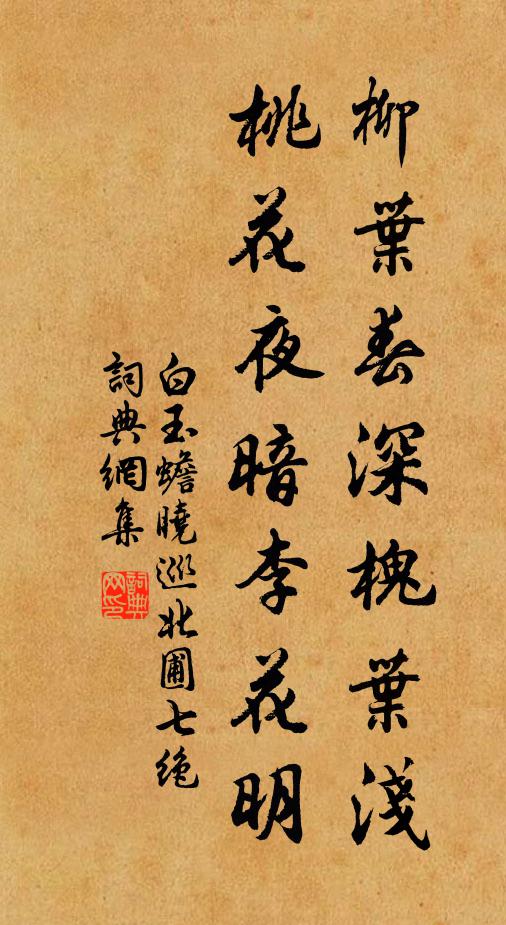 柳葉春深槐葉淺
桃花夜暗李花明
白玉蟾曉巡北圃七绝
詞典網集
詞典网印